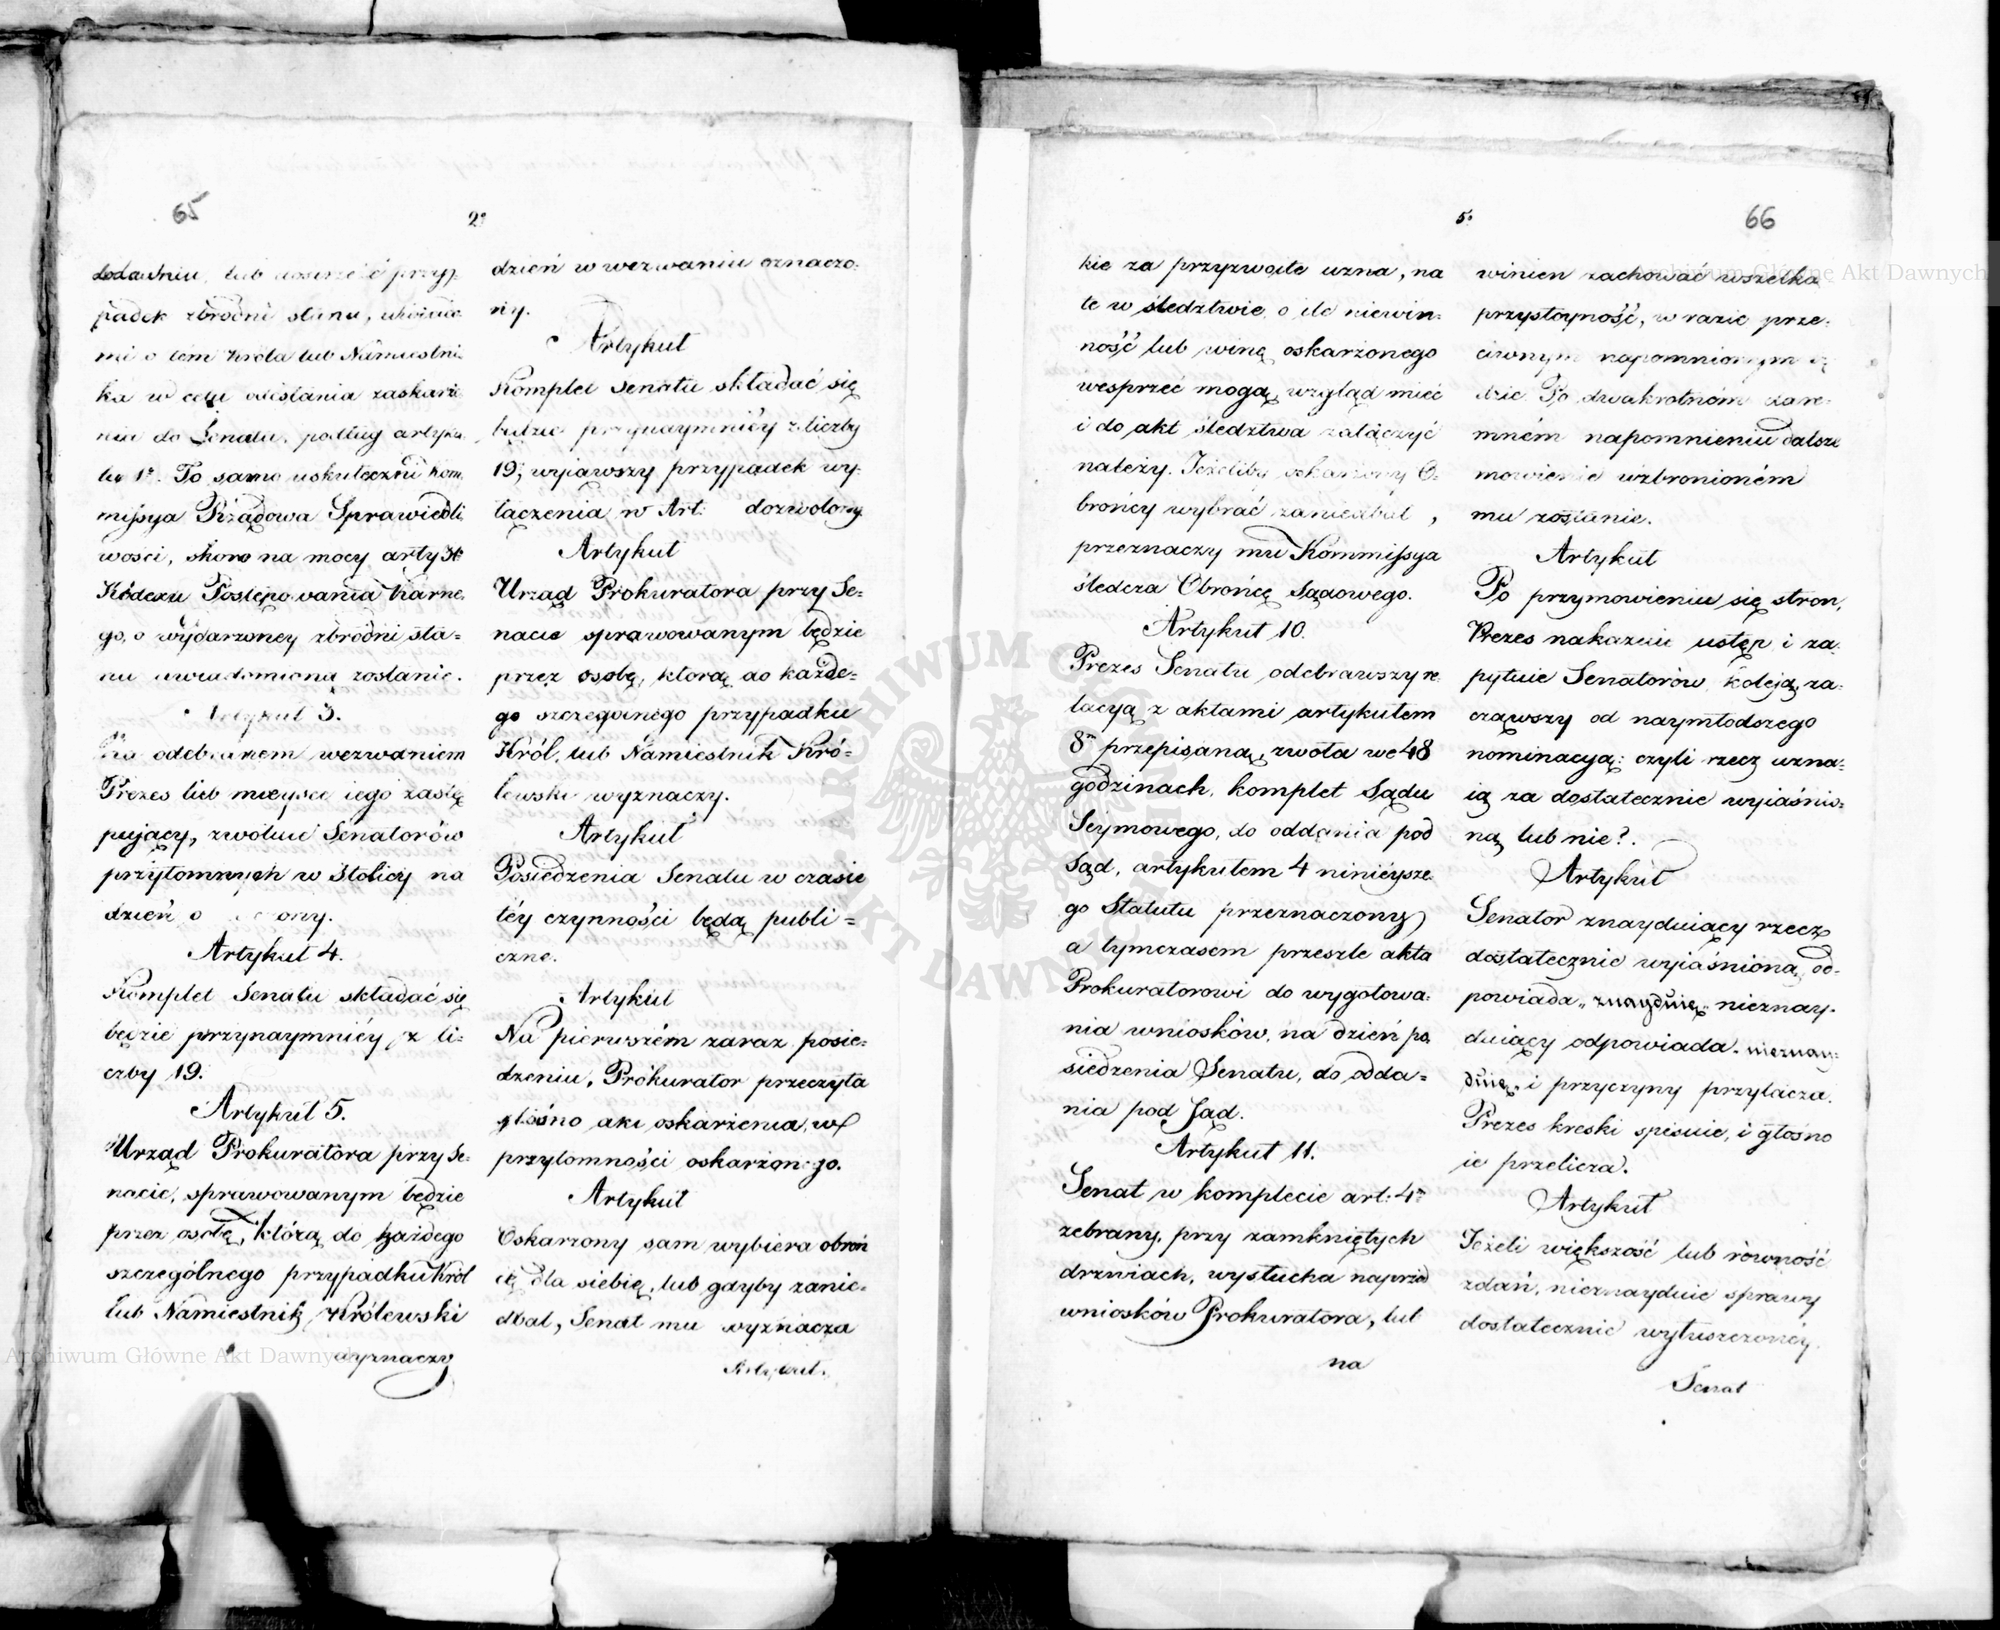 65
2°
lub przy-
padek zbrodni stanu, uwiado-
mi o tem Króla lub Namiestni-
ka w celu odesłania zaskarże-
nia do Senatu, podług artyku-
łu 1°. To samo uskuteczni Kom-
missya Rządowa Sprawiedli-
wości, skoro na mocy arty
Kodexu Postępowania Karne-
go, o wydarzoney zbrodni sta-
nu uwiadomioną zostanie.
Artykuł 3.
Za odebranem wezwaniem
Prezes lub mieysce iego zastę-
pujący, zwołuie Senatorów
przytomnych w Stolicy na
dzień o
Artykuł 4.
Komplet Senatu składać się
będzie przynaymniéy z li-
czby 19.
Artykuł 5.
Urząd Prokuratora przy Se-
nacie, sprawowanym będzie
przez osobę, którą do każdego
szczególnego przypadku Król
lub Namiestnik Królewski
wyznaczy
dzień w wezwaniu oznaczo-
ny.
Artykuł
Komplet Senatu składać się
będzie przynaymniéy z liczby
19; wyiąwszy przypadek wy-
łączenia w Art: dozwolony
Artykuł
Urząd Prokuratora przy Se-
nacie sprawowanym będzie
przez osobę, którą do każde-
go szczególnego przypadku
Król, lub Namiestnik Kró-
lewski wyznaczy.
Artykuł
Posiedzenia Senatu w czasie
téy czynności będą publi-
czne.
Artykuł
Na pierwszém zaraz posie-
dzeniu, Prokurator przeczyta
głośno akt oskarżenia, w
przytomności oskarżonego.
Artykuł
Oskarzony sam wybiera obroń
cę dla siebie, lub gdyby zanie-
dbał, Senat mu wyznacza
Artykuł.
5°
66
kie za przyzwoite uzna, na
te w śledztwie o ile niewin-
ność lub winę oskarżonego
wesprzeć mogą, wzgląd mieć
i do akt śledztwa załączyć
należy. Jeżeliby oskarżony O-
brońcy wybrać zaniedbał,
przeznaczy mu Kommissya
śledcza Obrońcę Sądowego.
Artykuł 10.
Prezes Senatu, odebrawszy re
lacyą z aktami artykułem
8m przepisaną, zwoła we 48
godzinach, komplet Sądu
Seymowego, do oddania pod
Sąd, artykułem 4 ninieysze
go Statutu przeznaczony,
a tymczasem przeszle akta
Prokuratorowi do wygotowa-
nia wniosków, na dzień po
siedzenia Senatu, do odda-
nia pod Sąd.
Artykuł 11.
Senat w komplecie art: 4m
zebrany, przy zamkniętych
drzwiach, wysłucha naprzód
wniosków Prokuratora, lub
na
winien zachować wszelką
przystoyność, w razie prze-
ciwnym napomnionym
dzie Po dwakrotném dare-
mném napomnieniu dalsze
mowienie wzbronioném
mu zostanie.
Artykuł
Po przymowieniu się stron,
Prezes nakazuie ustęp i za-
pytuie Senatorów koleją, za-
cząwszy od naymłodszego
nominacyą: czyli rzecz uzna-
ią za dostatecznie wyiaśnio-
ną lub nie?.
Artykuł
Senator znayduiący rzecz
dostatecznie wyiaśnioną, od-
powiada „znayduię„ nieznay-
duiący odpowiada „nieznay-
duię„ i przyczyny przyłącza.
Prezes kreski spisuie, i głośno
ie przelicza.
Artykuł
Jeżeli większość lub równość
zdań, nieznayduie sprawy
dostatecznie wyłuszczonéy.
Senat
Archiwum Główne Akt Dawnych
Archiwum Główne Akt Dawnych